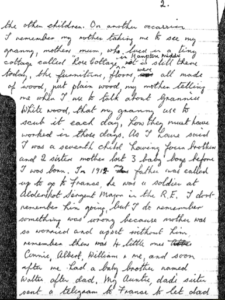 2.
the other children. On another occasion
I remember my mother taking me to see my
granny, mothers mum, who lived in a tiny
in Hampton
cottage called Rose Cottage, it is still there
today, the furniture, floors, were all made
of wood, just plain wood, my mother telling
me when I use to talk about Grannies
white wood, that my granny use to
scrub it each day, how they must have
worked in those days. As I have said
I was a seventh child having four brothers
and 2 sisters mother lost 3 baby boys before
I was born. In 191 father was called
up to go to France, he was a soldier at
Aldershot Sergent Major in the R.E. I dont
remember him going, but I do remember
something was wrong because mother was
so worried and upset without him.
remember there was 4 little ones
Connie, Albert, William & me, and soon
after me had a baby brother named
Walter after dad, My Auntie, dads sister
sent a telegram to France to let dad